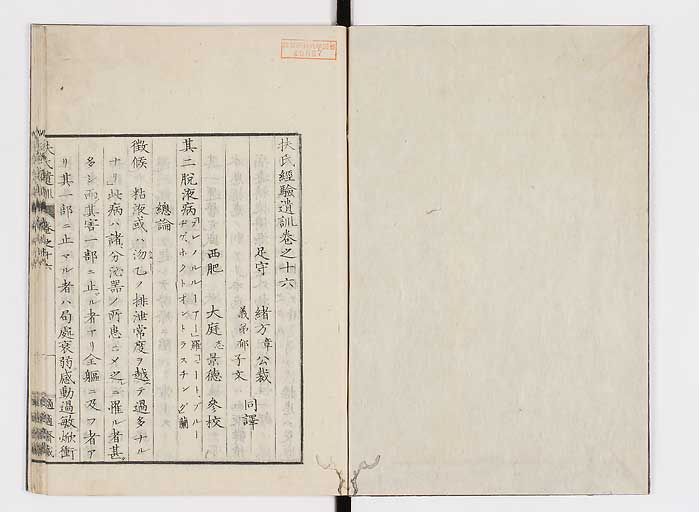 扶氏經驗遺訓卷之十六
足守 緒方章公裁
義弟郁子文 同譯
西肥 大庭忞景德 參校
其二脫液病
總論
徵候 粘液或ハ沕乙ノ排泄常度ヲ越テ過多ナル
ナリ此病ハ諸分泌器ノ所患ニメ之ニ罹ル者甚
多シ而其害一部ニ止ル者アリ全軀ニ及フ者ア
リ其一部ニ止マル者ハ局處衰弱感動過敏焮衝
扶氏遺訓 卷之十六
適適齋藏